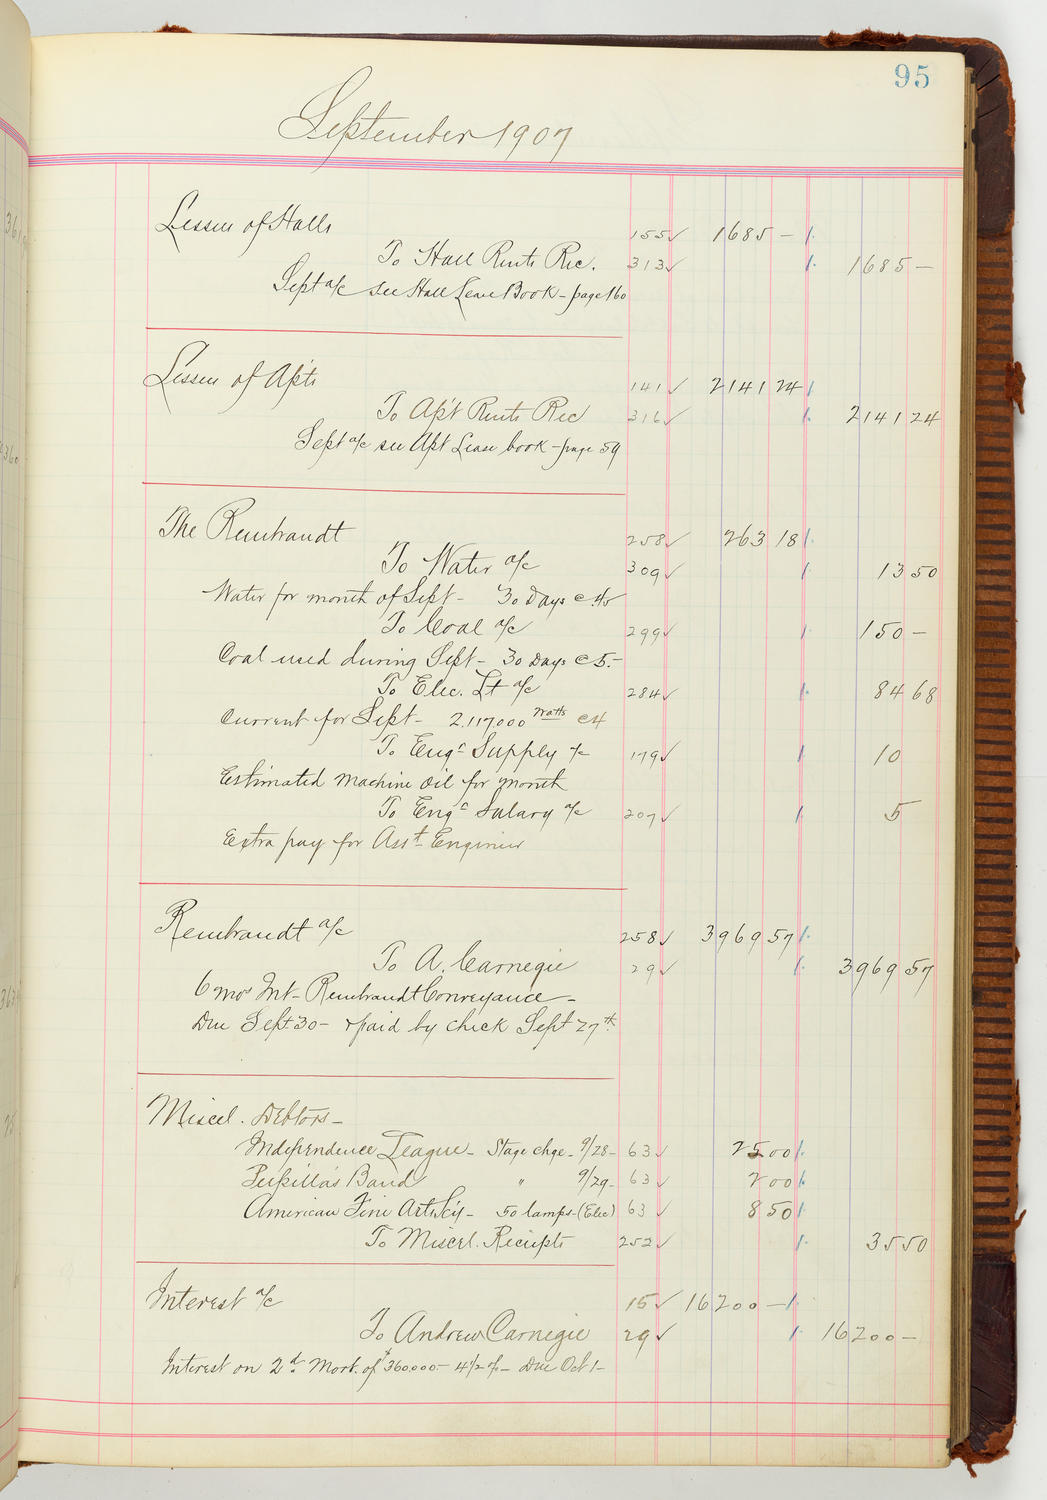 95
September 1907
Lessees of Halls 155✓ 1685 –
To Hall Rents Rec. 313✓ 1685 –
Sept a/c see Hall Lease Book – page 160
Lessees of Apts 141✓ 2141 24
To Apt Rents Rec 316✓ 2141 24
Sept a/c see Apt Lease book – page 59
The Rembrandt 258✓ 263 18
To Water a/c 309✓ 13 50
Water for month of Sept – 30 Days @ .45
To Coal a/c 299✓ 150 –
Coal used during Sept – 30 Days @ 5.–
To Elec. Lt a/c 284✓ 84 68
Current for Sept – 2,117,000 Watts @ 4
To Engr Supply a/c 179✓ 10
Estimated Machine Oil for month
To Engr Salary a/c 207✓ 5
Extra pay for Asst Engineer
Rembrandt a/c 258✓ 3969 57
To A. Carnegie 29✓ 3969 57
6 mos Int – Rembrandt Conveyance –
Due Sept 30 – & paid by check Sept 27th
Miscel. Debtors –
Independence League – Stage chge – 9/28 – 63✓ 25 00
Perkilla's Band " 9/29 – 63✓ 2 00
American Fine Arts Scy – 50 lamps – (Elec) 63✓ 8 50
To Miscel. Receipts 252✓ 35 50
Interest a/c 15✓ 16200 –
To Andrew Carnegie 29✓ 16200 –
Interest on 2d Mort. of $360000 – 4 1/2 % – Due Oct 1 –